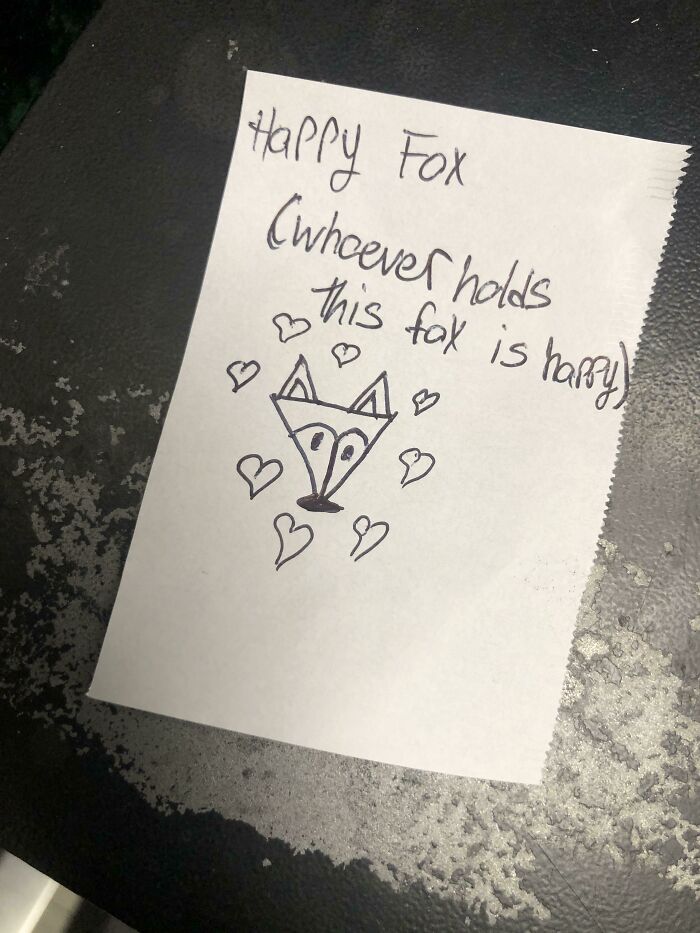 Happy Fox
(whoever holds
this fox is happy)